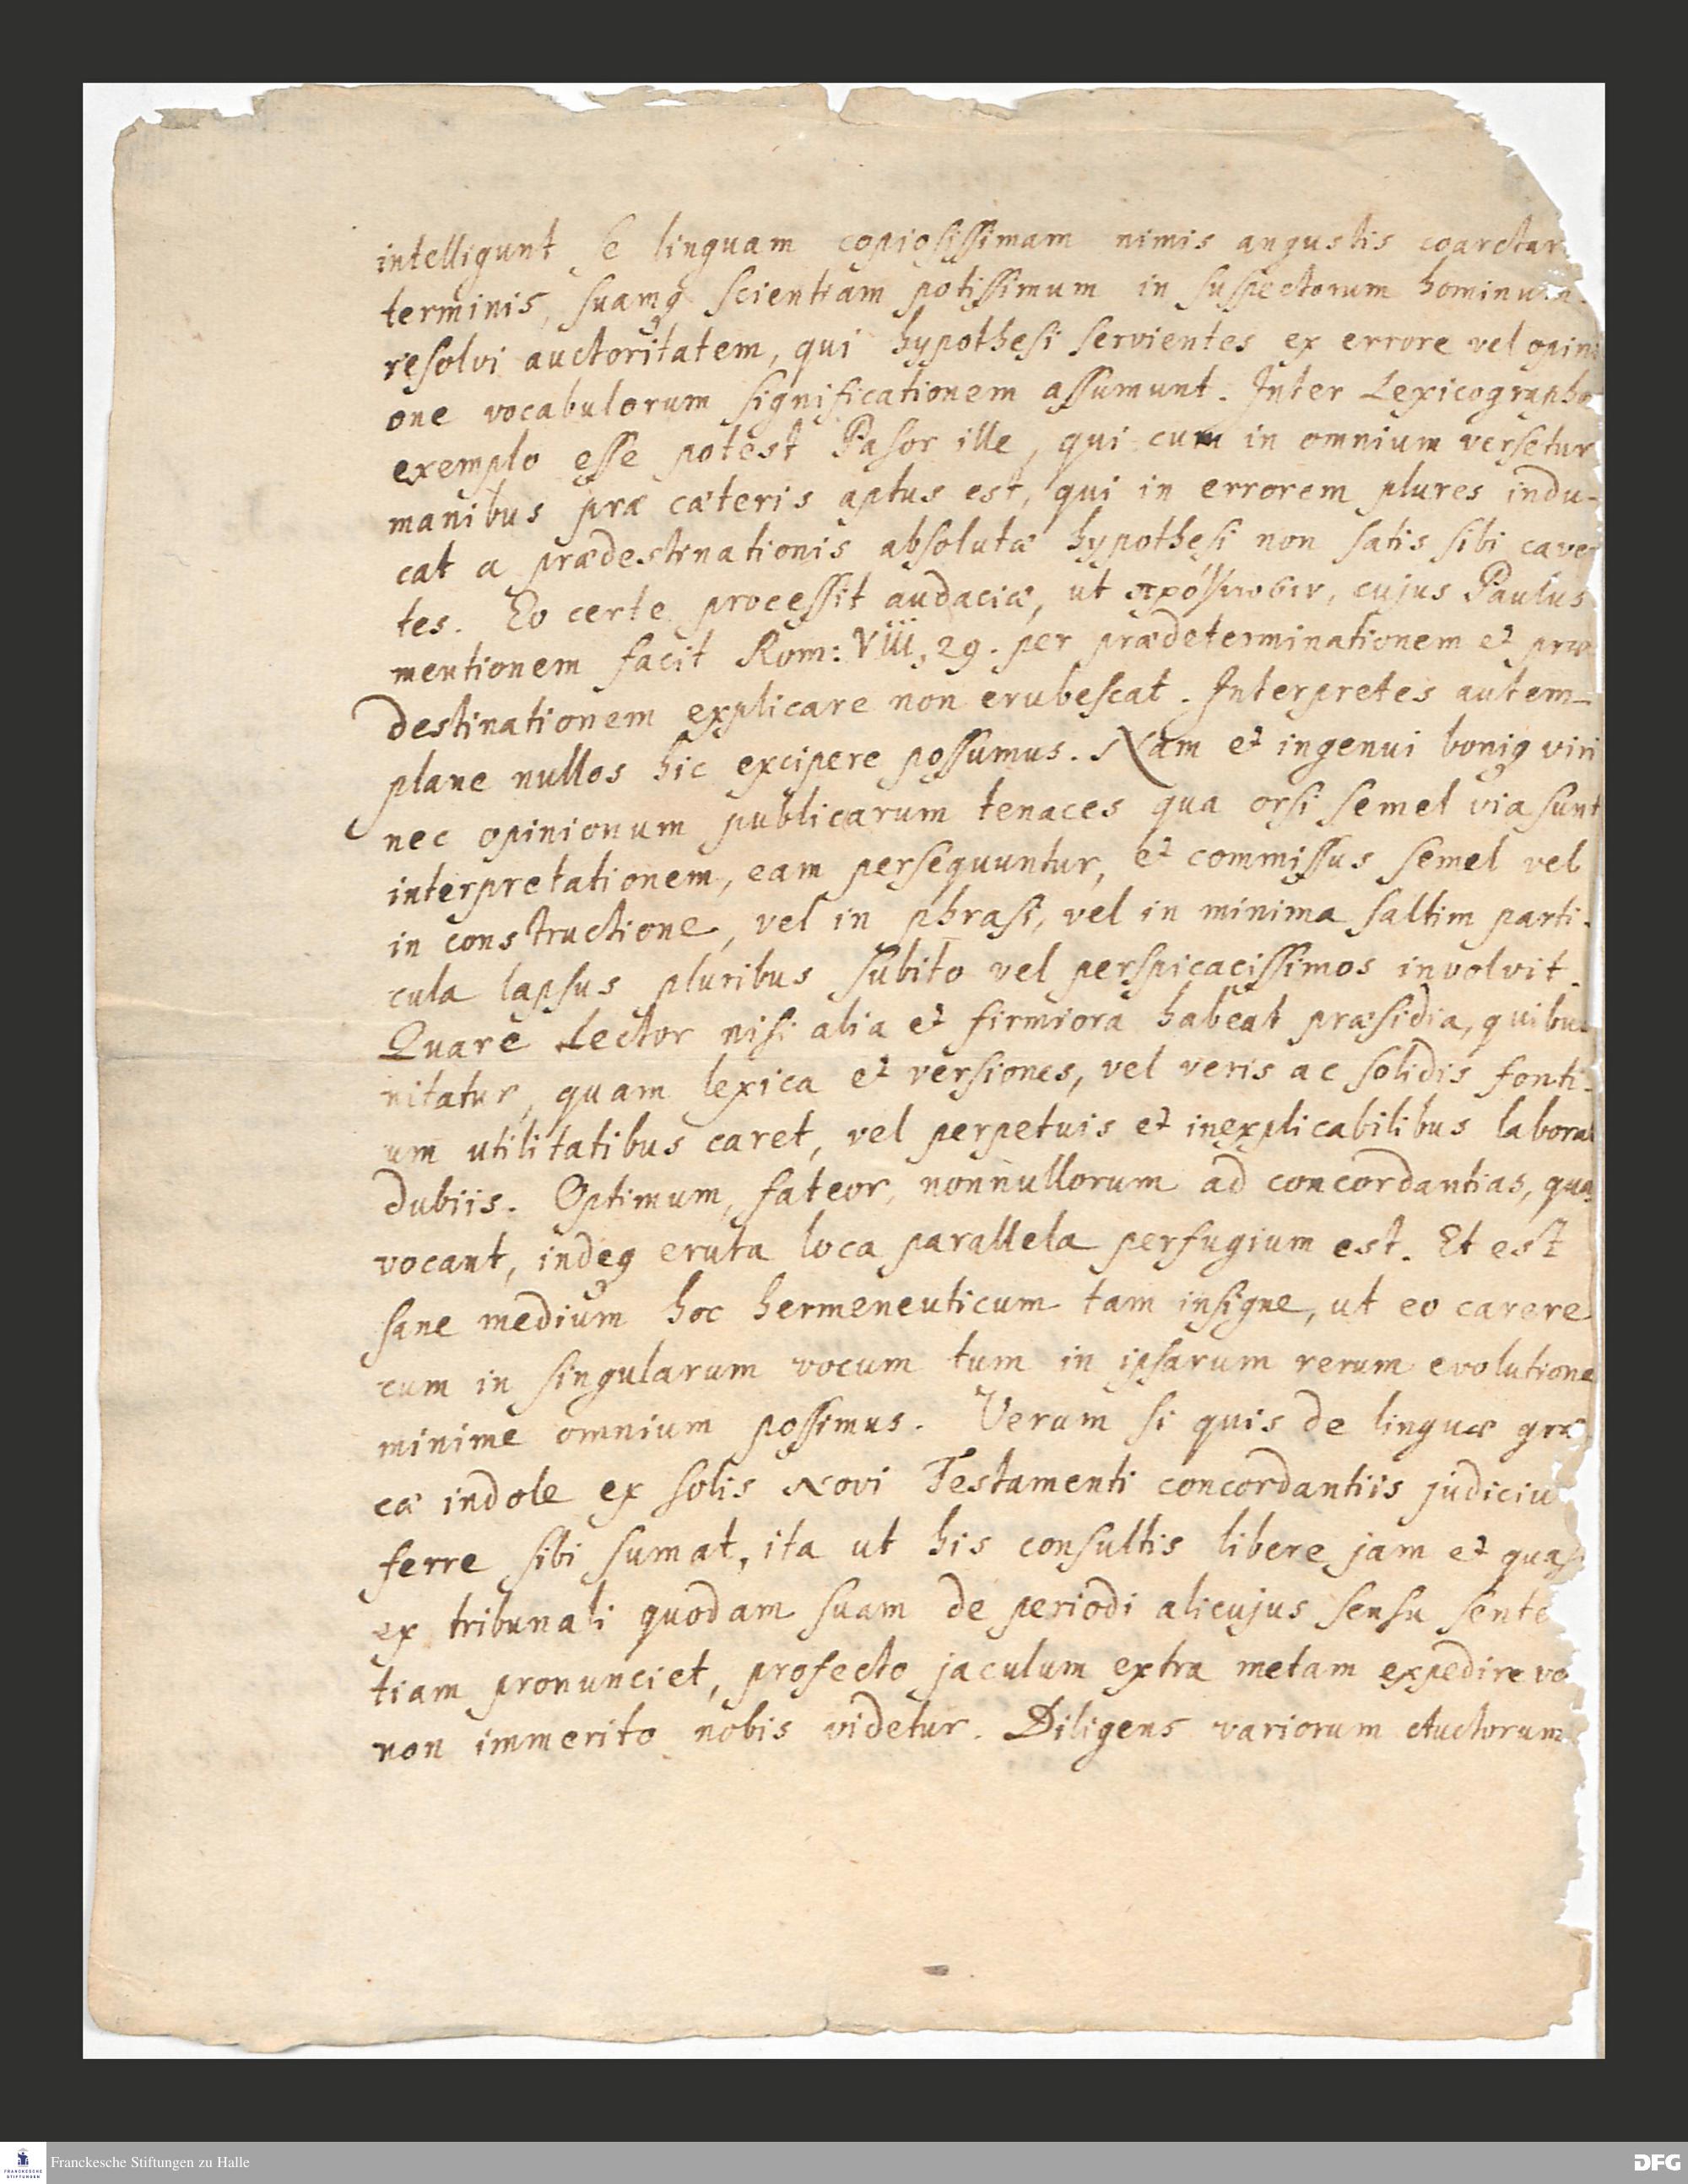 intelligunt se linguam copiosissimam nimis angustis coarctar
terminis, suamq scientiam potissimum in suspectorum hominum
resolvi auctoritatem, qui hypothesi servientes ex errore vel opini
one vocabulorum significationem assumunt. Inter Lexicographo
exemplo esse potest Pasor ille, qui cum in omnium versetur
manibus præ cæteris aptus est, qui in errorem plures indu-
cat a prædestinationis absolutæ hypothesi non satis sibi caven
tes. Eo certe processit audaciæ, ut πρόγνωσιν, cujus Paulus
mentionem facit Rom: VIII, 29. per prædeterminationem et præ
destinationem explicare non erubescat. Interpretes autem
plane nullos hic excipere possumus. Nam et ingenui boniq viri
nec opinionum publicarum tenaces qua orsi semel via sunt
interpretationem, eam persequuntur, et commissus semel vel
in constructione, vel in phrasi, vel in minima saltim parti-
cula lapsus pluribus subito vel perspicacissimos involvit.
Quare Lector nisi alia et firmiora habeat præsidia, quibus
nitatur, quam lexica et versiones, vel veris ac solidis fonti-
um utilitatibus caret, vel perpetuis et inexplicabilibus laborat
dubiis. Optimum, fateor, nonnullorum ad concordantias, quas
vocant, indeq eruta loca parallela perfugium est. Et est
sane medium hoc hermeneuticum tam insigne, ut eo carere
cum in singularum vocum tum in ipsarum rerum evolutione
minime omnium possimus. Verum si quis de linguæ græ
cæ indole ex solis Novi Testamenti concordantiis judiciu
ferre sibi sumat, ita ut his consultis libere jam et quasi
ex tribunali quodam suam de periodi alicujus sensu sente
tiam pronunciet, profecto jaculum extra metam expedire ve
non immerito nobis videtur. Diligens variorum Auctorum
Franckesche Stiftungen zu Halle
FRANCKESCHE STIFTUNGEN
DFG